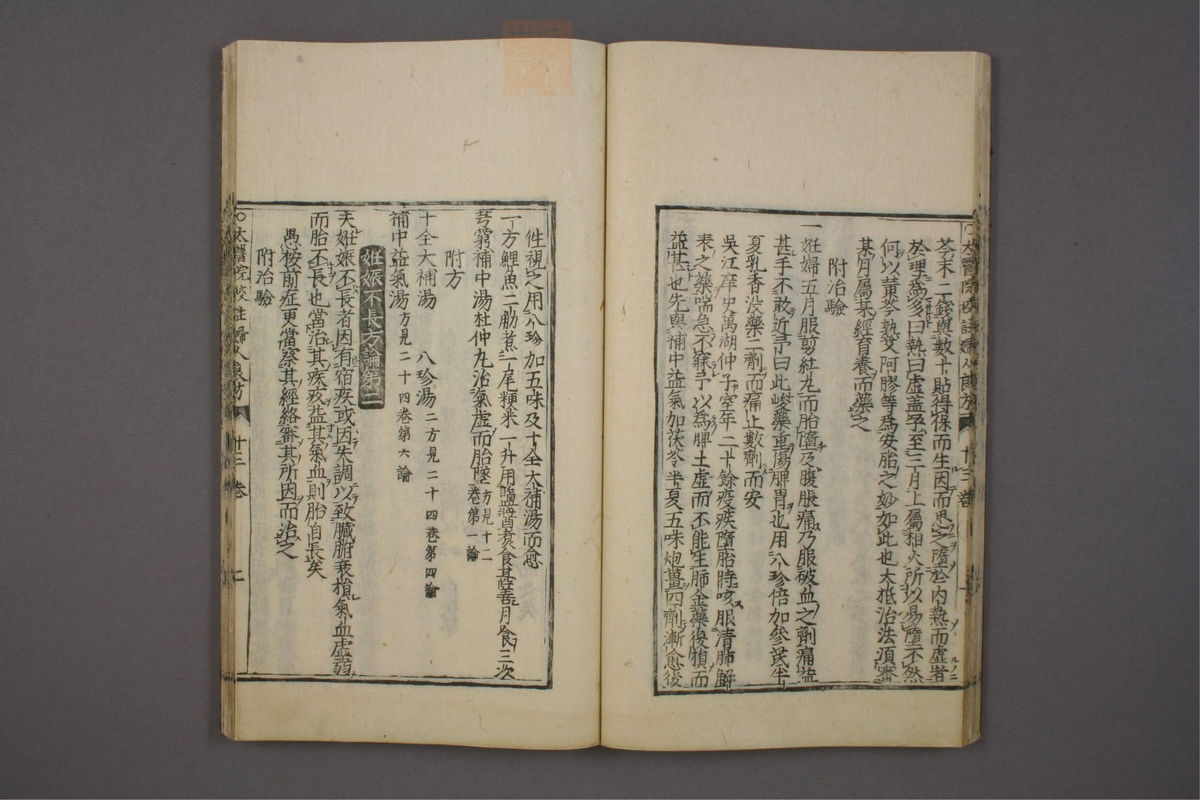 〇太醫院校註婦人良方 十三卷
芩末二錢與數十貼得保而生因而思之墮於內熱而虛者
於理為多曰熱曰虛蓋孕至三月上屬相火所以易墮不然
何以黃芩熟艾阿膠等為安胎之妙如此也大抵治法須審
某月屬某經育養而藥之
附治驗
一妊婦五月服剪紅丸而胎墮及腹脹痛乃服破血之劑痛益
甚手不敢近予曰此峻藥重傷脾胃也用八珍倍加參芪半
夏乳香沒藥二劑而痛止數劑而安
吳江庠史萬湖仲子室年二十餘疫疾墮胎時咳服清肺解
表之藥喘急不寐予以為脾土虛而不能生肺金藥復損而
益甚也先與補中益氣加茯苓半夏五味炮薑四劑漸愈後
往視之用八珍加五味及十全大補湯而愈
一方鯉魚二觔煮一尾粳米一升用鹽醬煮食甚善月食三次
芎藭補中湯杜仲丸治氣虛而胎墜方見十二卷第一論
附方
十全大補湯 八珍湯二方見二十四卷第四論
補中益氣湯方見二十四卷第六論
妊娠不長方論第二
夫妊娠不長者因有宿疾或因失調以致臟腑衰損氣血虛弱
而胎不長也當治其疾疢益其氣血則胎自長矣
愚按前症更當察其經絡審其所因而治之
附治驗
〇太醫院校註婦人良方 十三卷 二